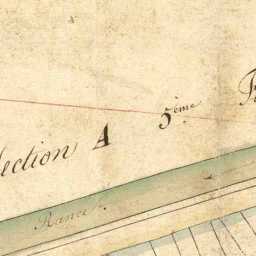 Section A 5ème F
Rance R.